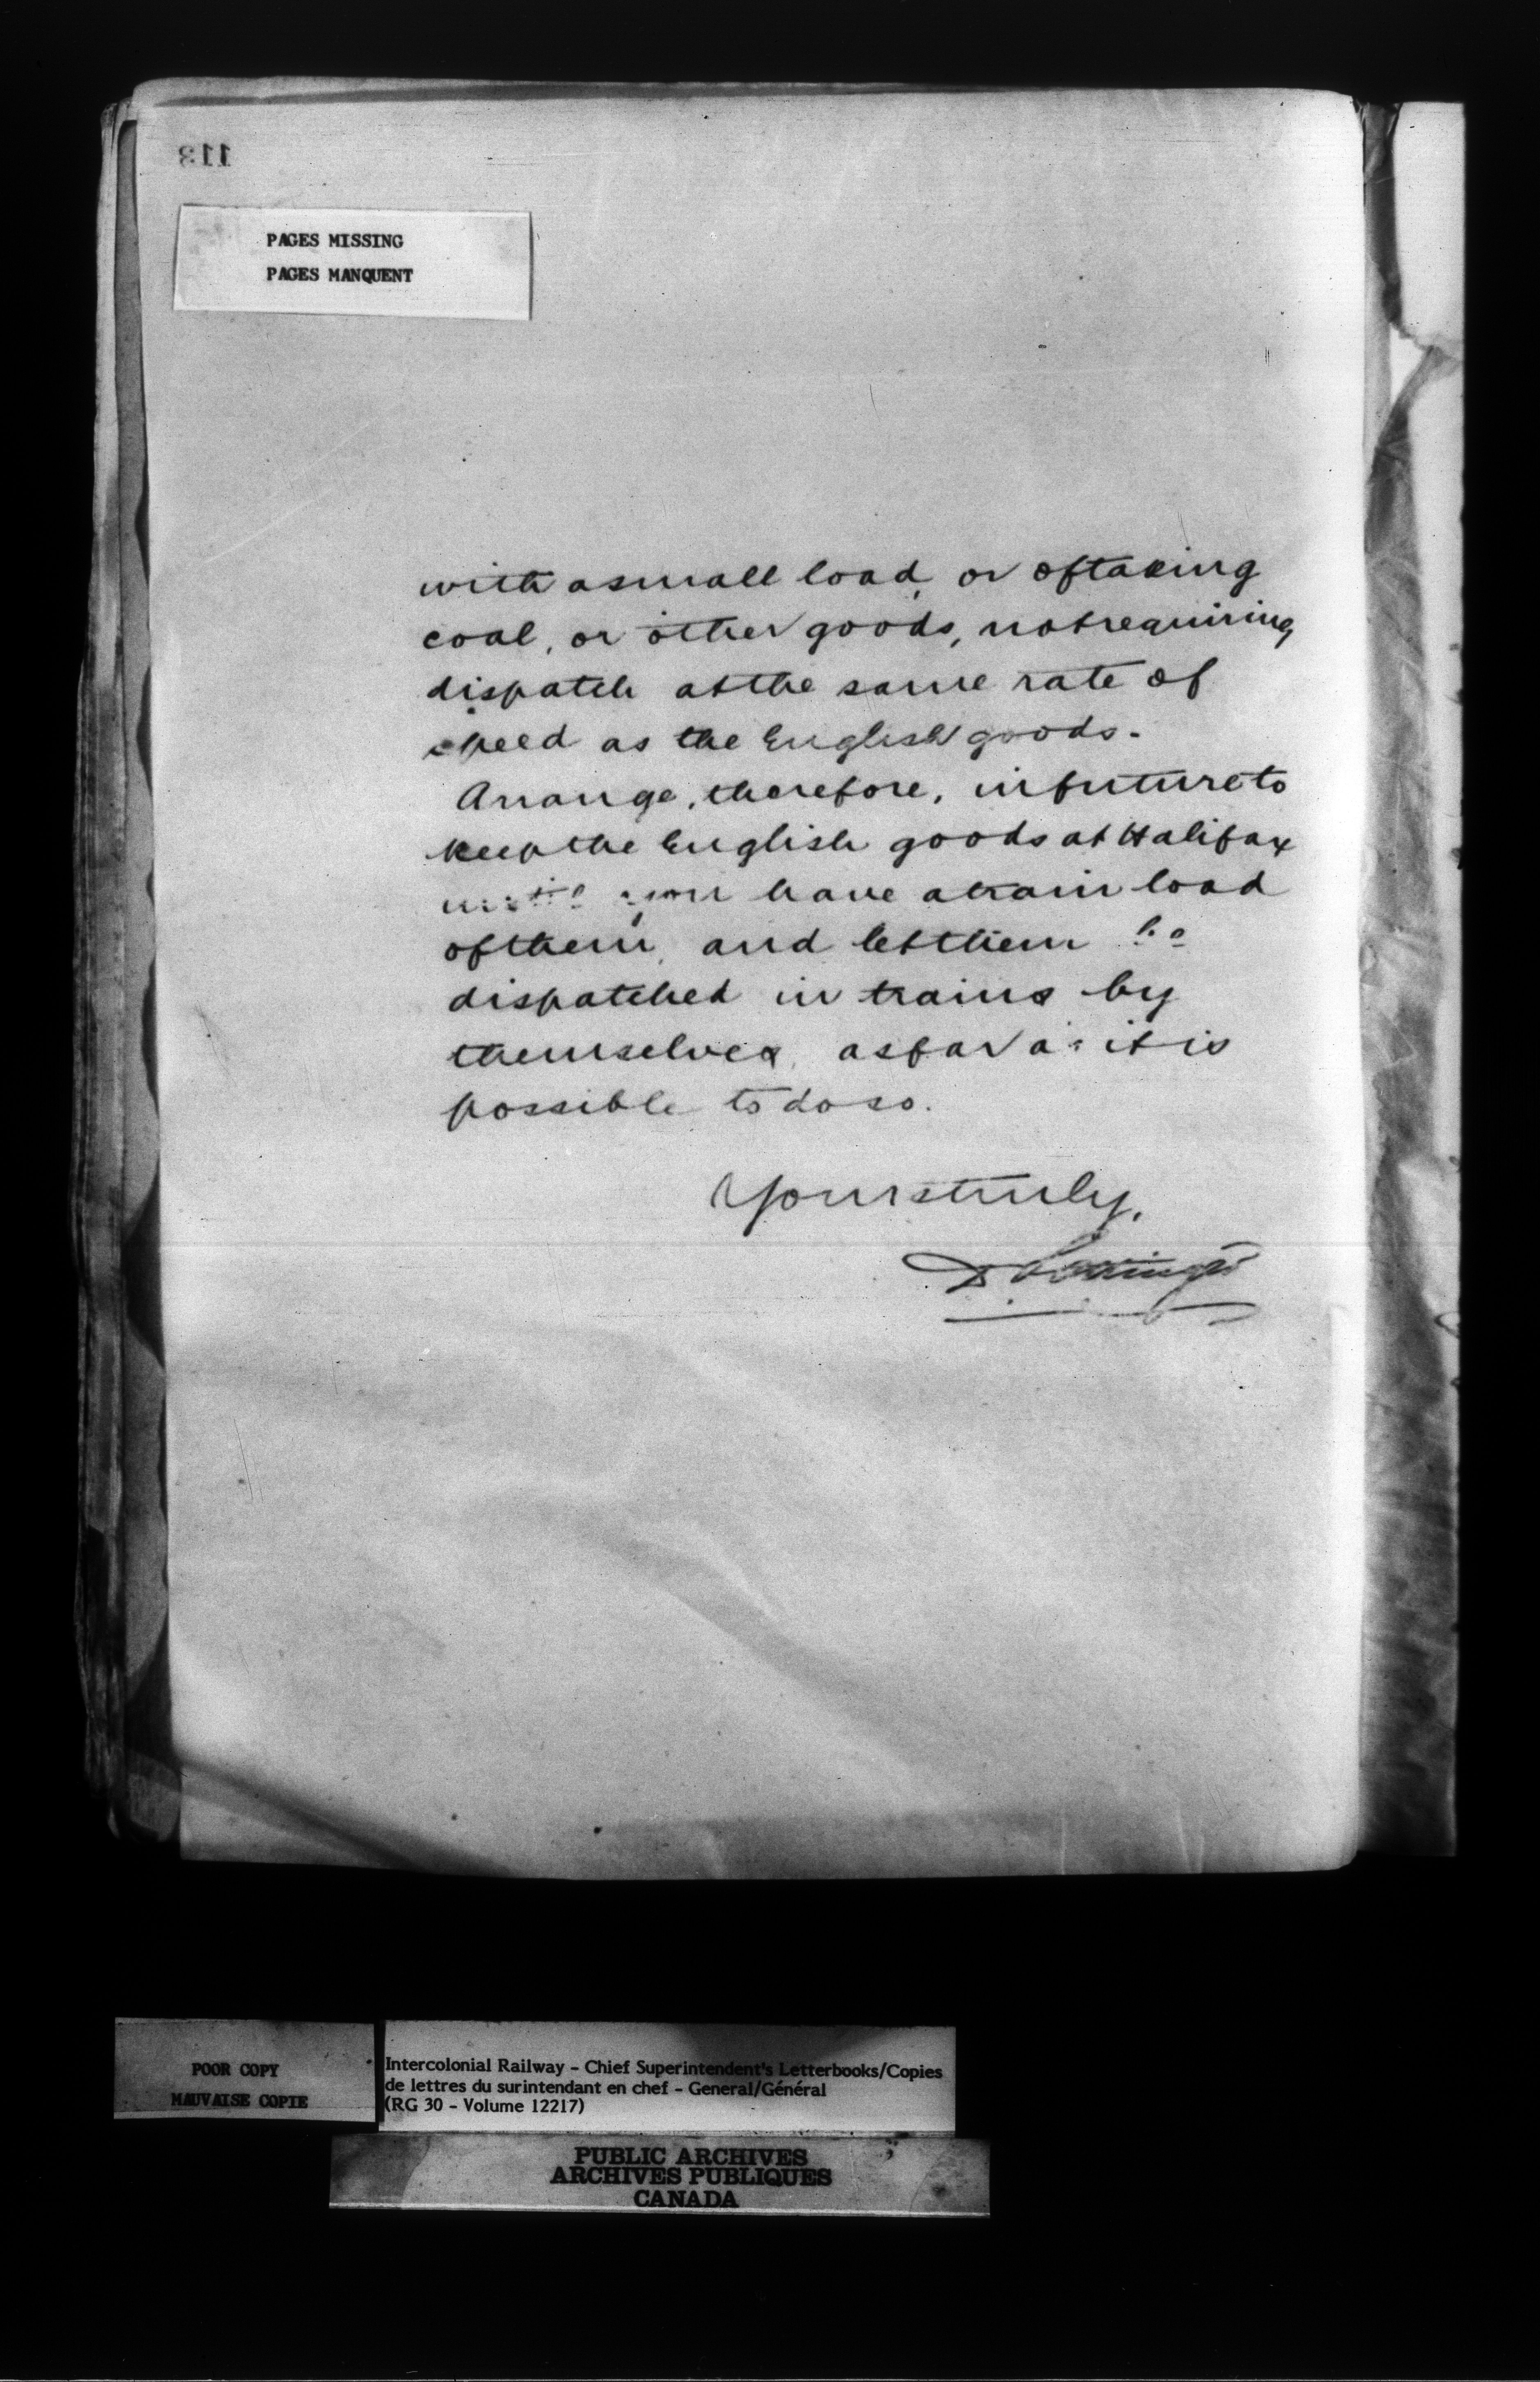 113
PAGES MISSING
PAGES MANQUENT
with a small load, or of taking
coal, or other goods, not requiring
dispatch at the same rate of
speed as the English goods.
Arrange, therefore, in future to
keep the English goods at Halifax
until you have a train load
of them, and let them be
dispatched in trains by
themselves, as far as it is
possible to do so.
Yours truly,
D Pottinger
POOR COPY
MAUVAISE COPIE
Intercolonial Railway - Chief Superintendent's Letterbooks/Copies
de lettres du surintendant en chef - General/Général
(RG 30 - Volume 12217)
PUBLIC ARCHIVES
ARCHIVES PUBLIQUES
CANADA